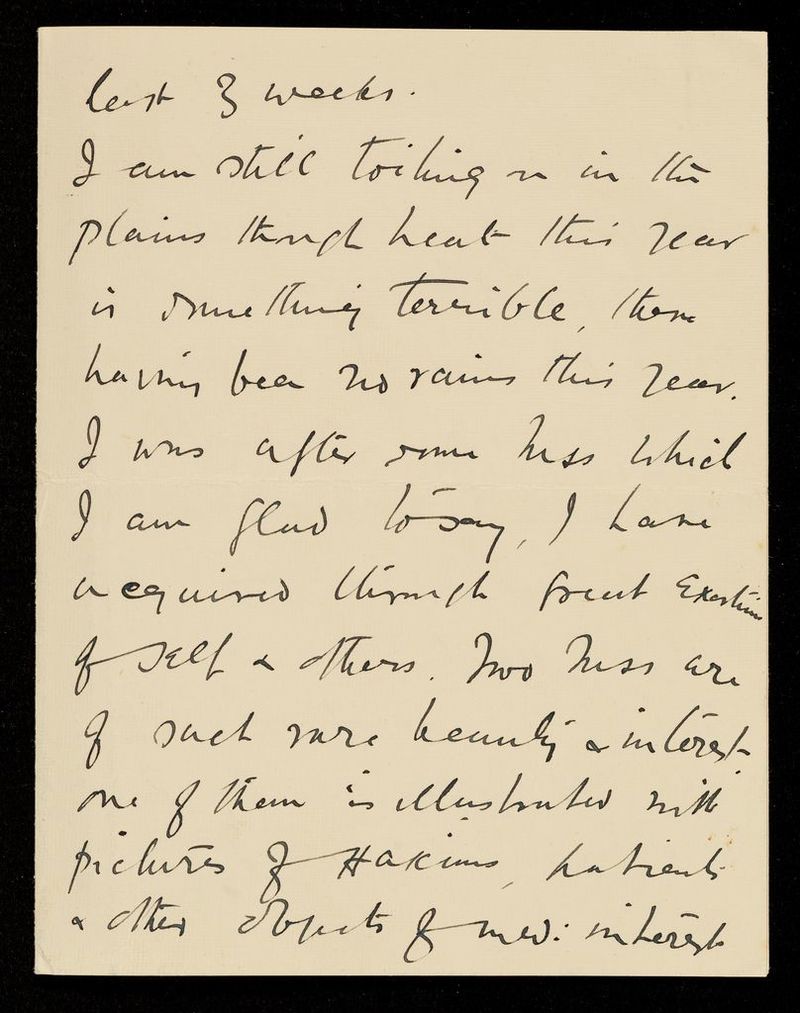 last 3 weeks.
I am still toiling on in the
plains though heat this year
is something terrible, there
having been no rains this year.
I was after some Mss which
I am glad to say, I have
acquired through great Exertions
of self & others. Two Mss are
of such rare beauty & interest
one of them is illustrated with
pictures of Hakims, patients
& other objects of med: interest